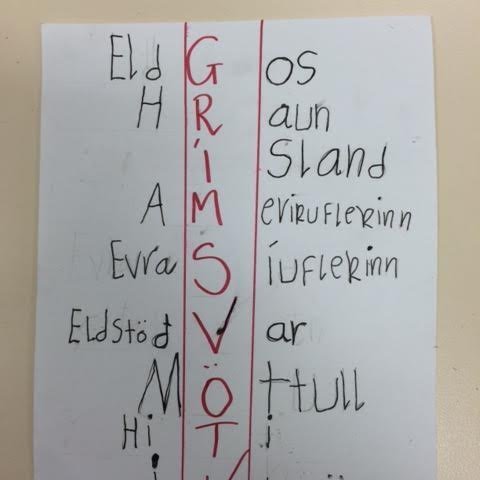 Eld G os
H R aun
Í Sland
A M eriruflerinn
Evra S íuflerinn
Eldstöd V ar
M Ö ttull
Hi T i